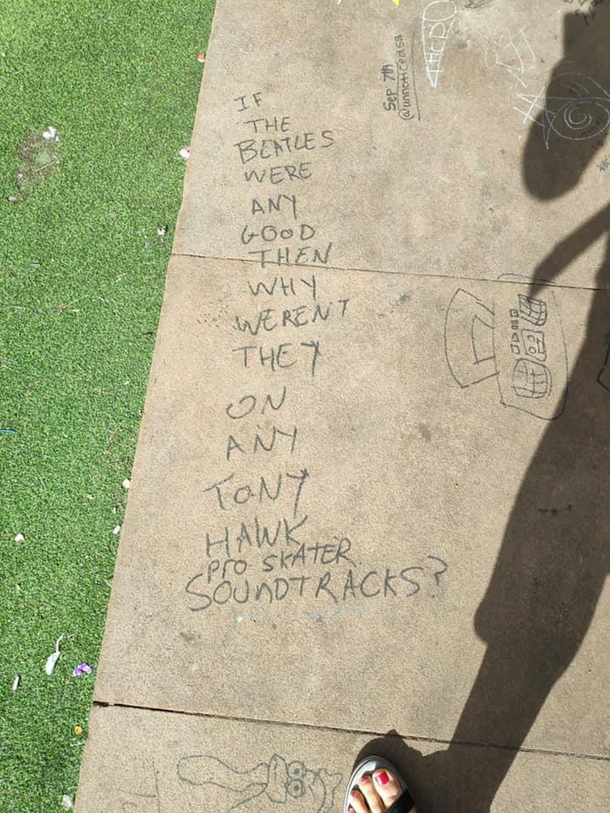 IF
THE
BEATLES
WERE
ANY
GOOD
THEN
WHY
WEREN'T
THEY
ON
ANY
TONY
HAWK
PrO SKATER
SOUNDTRACKS?
Sep 7th
@unnoticedsa